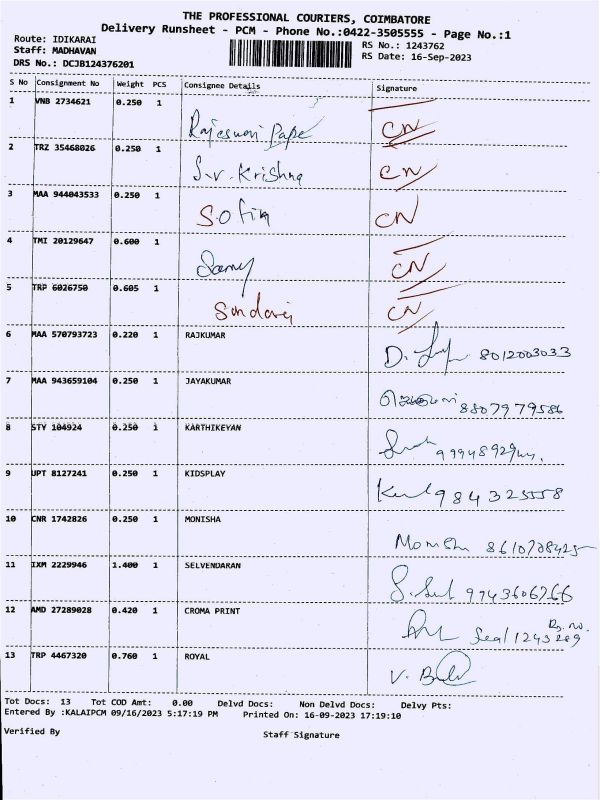 THE PROFESSIONAL COURIERS, COIMBATORE
Delivery Runsheet - PCM - Phone No.:0422-3505555 - Page No.:1
Route: IDIKARAI RS No.: 1243762
Staff: MADHAVAN RS Date: 16-Sep-2023
DRS No.: DCJB124376201
S No Consignment No Weight PCS Consignee Details Signature
1 VNB 2734621 0.250 1
Rajeswari Pape CN
2 TRZ 35468026 0.250 1
S.v. Krishna CN
3 MAA 944043533 0.250 1
Sofia CN
4 TMI 20129647 0.600 1
CN
5 TRP 6026750 0.605 1
CN
6 MAA 570793723 0.220 1 RAJKUMAR
D. 8012003033
7 MAA 943659104 0.250 1 JAYAKUMAR
8807979586
8 STY 104924 0.250 1 KARTHIKEYAN
9 UPT 8127241 0.250 1 KIDSPLAY
984325558
10 CNR 1742826 0.250 1 MONISHA
8610708425
11 IXM 2229946 1.400 1 SELVENDARAN
9743606766
12 AMD 27289028 0.420 1 CROMA PRINT
Seal 1243289
13 TRP 4467320 0.760 1 ROYAL
Tot Docs: 13 Tot COD Amt: 0.00 Delvd Docs: Non Delvd Docs: Delvy Pts:
Entered By :KALAIPCM 09/16/2023 5:17:19 PM Printed On: 16-09-2023 17:19:10
Verified By Staff Signature